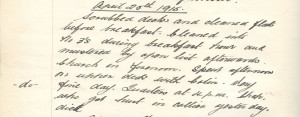 April 25th 1915.
Scrubbed decks and cleaned flats
before breakfast. Cleaned into
No 3's during breakfast hour and
mustered by open list afterwards.
Church in forenoon. Spent afternoon
on upper deck with Colin. Very
fine day. Quarters at 4 p.m. Stoker
-do- who got hurt in collier yesterday,
died